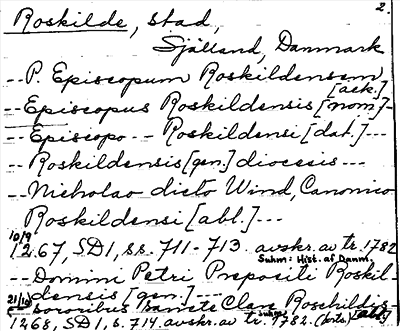 2.
Roskilde, stad,
Själland, Danmark
-- P. Episcopum Roskildensem
[ack.]
-- Episcopus Roskildensis [nom]-
-- Episcopo -- Roskildensi [dat.] ---
-- Roskildensis [gen.] diocesis ---
-- Nicholao dicto Wind, Canonico
Roskildensi [abl.] ---
10/9
1267, SD1, ss. 711-713. avskr. av tr. 1782
Suhm: Hist. af Danm.
-- Domini Petri Prepositi Roskil-
densis [gen.] ---
21/10
sororibus sancte Clare Roschildis
1268, SD1, s. 714. avskr. av tr. 1782. (forts.)